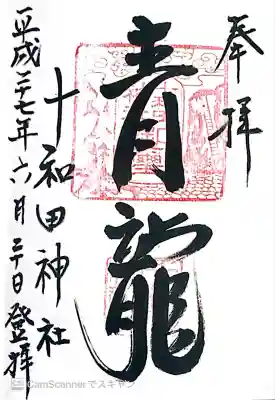 奉拝
青龍
十和田神社
平成二十七年六月二十日登拝
CamScannerでスキャン